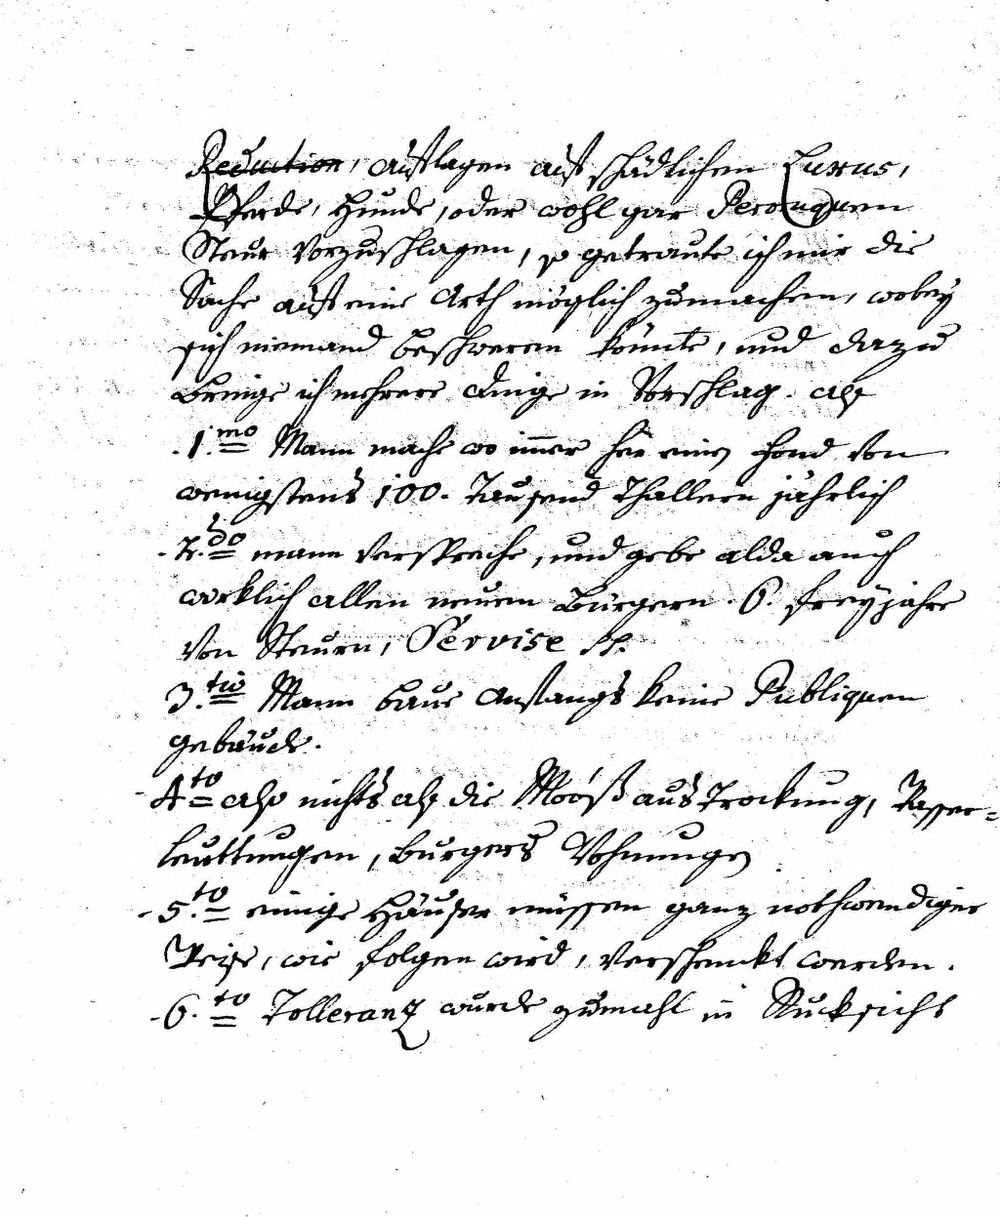 Reduction, auflagen auf schädlichen Luxus,
Pferde, Hunde, oder wohl gar Perouquen
Steur vorzuschlagen, so getraute ich mir die
Sache auf eine Arth möglich zumachen, wobey
sich niemand beschweren könnte, und dazu
bringe ich mehrere dinge in Vorschlag. alß
1.mo Mann mache wo im̄er her einen Fond von
wenigstens 100. Tausend Thallern jährlich
2.do mann verspreche, und gebe alda auch
würklich allen neuen Bürgern. 6. freyjahre
von Steurn, Servise
3.tio Mann baue Anfangs keine Publiquen
gebäude.
4.to also nichts alß die Mooß austrockung, Wasser=
leuttungen, burgers Wohnungen
5.to einige Häuser müssen ganz nothwendiger
Weiße, wie folgen wird, verschenckt werden.
6.to Tolleranz wurde zumahl in Ruksicht